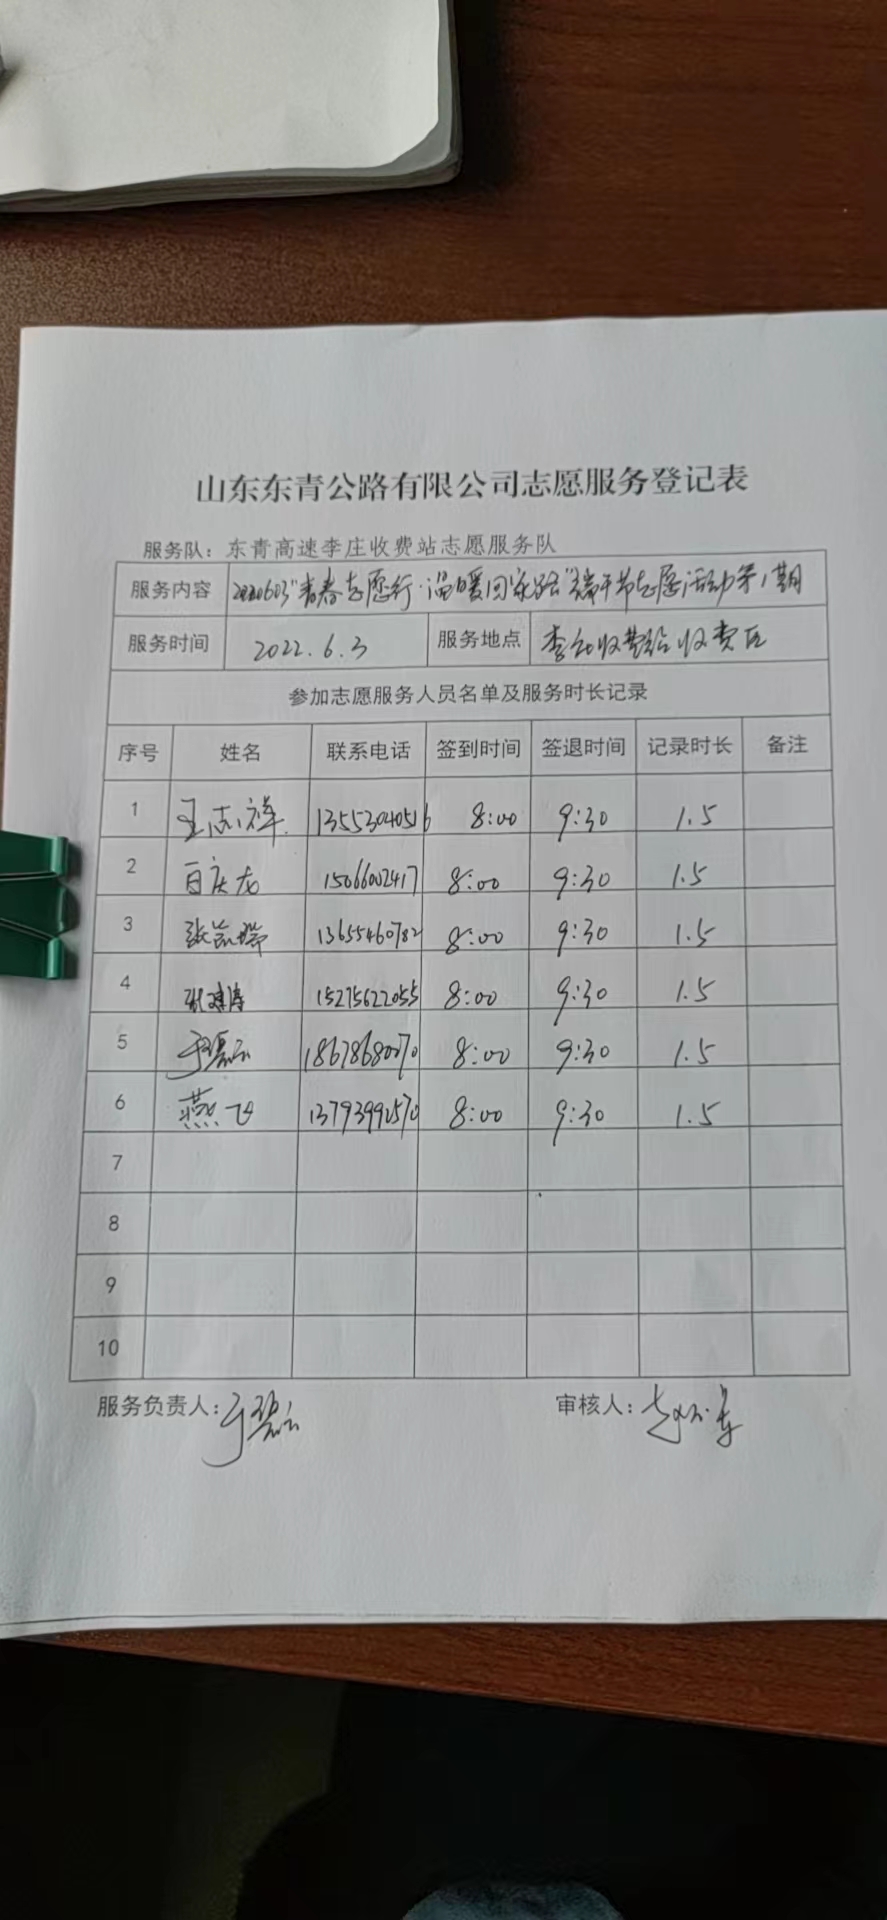 山东东青公路有限公司志愿服务登记表
服务队：东青高速李庄收费站志愿服务队
服务内容 2220603"青春志愿行·温暖回家路"端午节志愿活动第1期
服务时间 2022.6.3 服务地点 李庄收费站收费区
参加志愿服务人员名单及服务时长记录
序号 姓名 联系电话 签到时间 签退时间 记录时长 备注
1 王志祥 13553040516 8:00 9:30 1.5
2 百庆龙 15066002417 8:00 9:30 1.5
3 张凯瑞 13655460782 8:00 9:30 1.5
4 15275622055 8:00 9:30 1.5
5 于碧云 18678680070 8:00 9:30 1.5
6 燕飞 13793990570 8:00 9:30 1.5
7
8
9
10
服务负责人：于碧云 审核人：